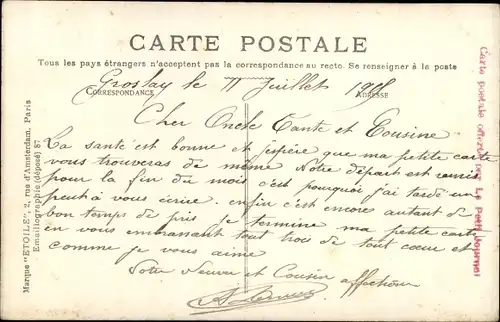 CARTE POSTALE
Tous les pays étrangers n'acceptent pas la correspondance au recto. Se renseigner à la poste
Groslay le 11 Juillet
CORRESPONDANCE ADRESSE
Cher Oncle Tante et Cousine
La santé est bonne et j'espère que ma petite carte
vous trouveras de même Notre départ est remis
pour la fin du mois c'est pourquoi j'ai tardé un
peut à vous écrire. enfin c'est encore autant de
bon temps de pris je termine ma petite carte
en vous embrassant tout trois de tout cœur et
comme je vous aime
Votre Neveu et Cousin affectueux
Marque "ETOILE", 2, rue d'Amsterdam, Paris
Emailliographie (déposé) 87
Carte postale offerte par Le Petit Journal